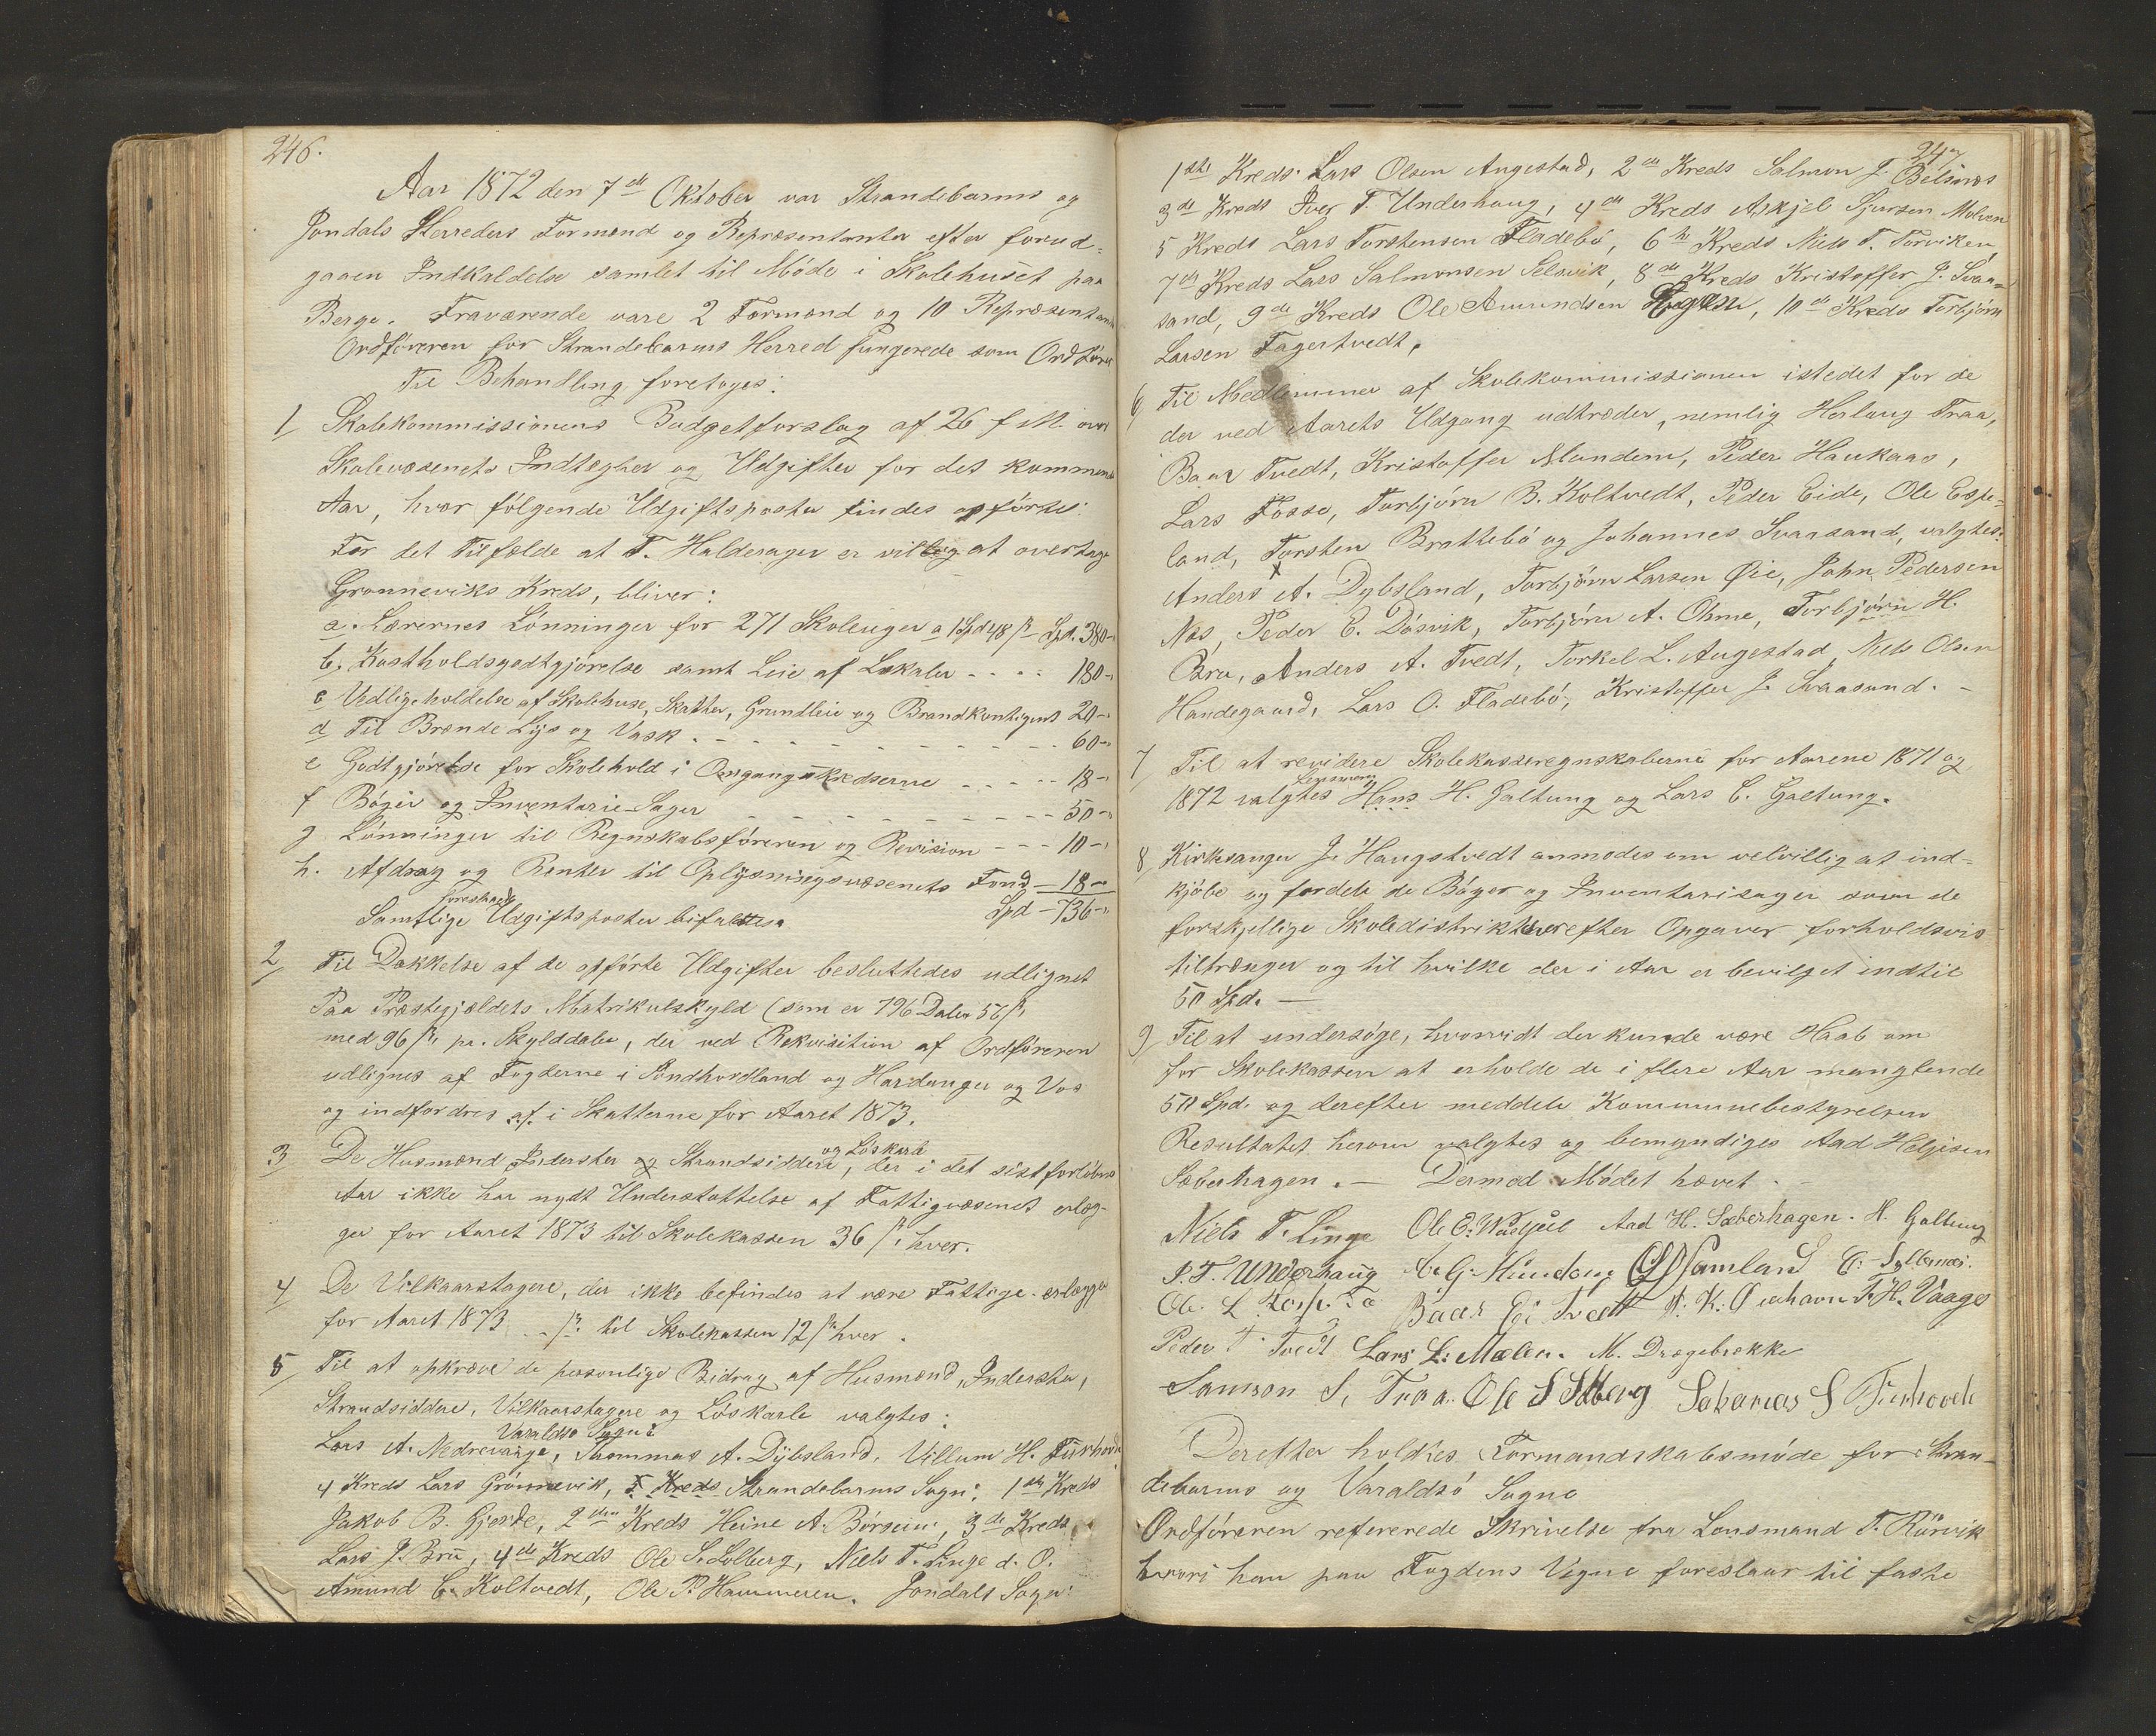 246.
Aar 1872 den 7de Oktober var Strandebarms og
Jondals Herreders Formænd og Repræsentanter efter forud-
gaaen Indkaldelse samlet til Møde i Skolehuset paa
Berge. Fraværende vare 2 Formænd og 10 Repræsentanter
Ordføreren for Strandebarms Herred fungerede som Ordfører
Til Behandling foretoges:
1 Skolekommissionens Budgetforslag af 26 f. M. over
Skolevæsenets Indtægter og Udgifter for det kommende
Aar, hvor følgende Udgiftsposter findes opførte:
For det Tilfælde at T. Haldesager er villig at overtage
Gronneviks Kreds, bliver:
a. Lærernes Lønninger for 271 Skoleuger a 1 Spd 48 ß Spd. 380-
b. Kostholdsgodtgjørelse samt Leie af Lokaler - - - - 180-
c Vedligeholdelse af Skolehuse, Skatter, Grundleie og Brandkontigent 20-
d Til Brænde Lys og Vask - - - - 60-
e Godtgjørelse for Skolehold i Omgangskredserne - - - - 18-
f Bøger og Inventarie-Sager - - - - 50-
g Lønninger til Regnskabsføreren og Revision - - - 10-
h. Afdrag og Renter til Oplysningsvæsenets Fond - 18-
Samtlige foreslaaede Udgiftsposter bifaldtes. Spd - 736-
2 Til Dækkelse af de opførte Udgifter besluttedes udlignet
Paa Præstegjældets Matrikulskyld (som er 796 Daler 56 ß
med 96 ß pr. Skylddaler, der ved Rekvisition af Ordføreren
udlignes af Fogderne i Søndhordland og Hardanger og Vos
og indfordres af i Skatterne for Aaret 1873.
3 De Husmænd Inderster og Strandsiddere og Løskarle, der i det sidst forløbne
Aar ikke har nydt Understøttelse af Fattigvæsenet erlæg-
ger for Aaret 1873 til Skolekassen 36 ß hver.
4 De Vilkaarstagere, der ikke befindes at være Fattige erlægger
for Aaret 1873 ß til Skolekassen 12 ß hver.
5 Til at opkræve de personlige Bidrag af Husmænd, Inderster,
Strandsiddere, Vilkaarstagere og Løskarle valgtes:
Varaldsø Sogn:
Lars A. Nedrevaage, Thommas A. Dybsland, Villum H.
4 Kreds Lars Grønnevik, Kreds Strandebarms Sogn: 1ste Kreds
Jakob B. Gjerde, 2den Kreds Heine A. Børseim, 3de Kreds
Lars J. Bru, 4de Kreds Ole S. Solberg, Niels T. Linge d. O.
Amund E. Koltvedt, Ole P. Hammeren. Jondals Sogn:
247
1ste Kreds Lars Olsen Augestad, 2den Kreds Salmon J. Belsnæs
3de Kreds Iver T. Underhaug, 4de Kreds Askjel Sjursen Molven
5 Kreds Lars Torstensen Fladebø, 6te Kreds Niels T. Torviken,
7de Kreds Lars Salmonsen Selsvik, 8de Kreds Kristoffer J. Svaa-
sand, 9de Kreds Ole Amundsen, 10de Kreds Torbjørn
Larsen Fagertvedt.
6 Til Medlemmer af Skolekommissionen istedet for de
der ved Aarets Udgang udtræder, nemlig Herlaug Traa,
Baar Tvedt, Kristoffer Mundem, Peder Haukaas,
Lars Fosse, Torbjørn B. Koltvedt, Peder Eide, Ole Espe-
land, Torsten Brattebø og Johannes Svaasand, valgtes:
Anders A. Dybsland, Torbjørn Larsen Øie, John Pedersen
Næs, Peder E. Døsvik, Torbjørn A. Ohme, Torbjørn H.
Bru, Anders A. Tvedt, Torkel L. Augestad, Niels Olsen
Handegaard, Lars O. Fladebø, Kristoffer J. Svaasand. -
7 Til at revidere Skolekasseregnskaberne for Aarene 1871 og
1872 valgtes Lensmann Hans H. Galtung og Lars E. Galtung.
8 Kirkesanger J. Haugstvedt anmodes om velvillig at ind-
kjøbe og fordele de Bøger og Inventariesager som de
forskjellige Skoledistrikter efter Opgaver forholdsvis
tiltrænger og til hvilke der i Aar er bevilget indtil
50 Spd. -
9 Til at undersøge, hvorvidt der kunde være Haab om
for Skolekassen at erholde de i flere Aar manglende
50 Spd. og derefter meddele Kommunebestyrelsen
Resultatet herom valgtes og bemyndiges Aad Helgesen
Sæberhagen. - Dermed Mødet hævet. -
Niels T. Linge Ole E. Aad H. Sæberhagen. H. Galtung
I. T. Underhaug A. G. Mundem Samland E.
Ole L. Baar E. Tvedt T. H. Vaage
Peder T. Tvedt Lars L. Mælen. M. Drægebrække
Samson S. Traa. Ole S Solberg Sakarias S
Derefter holdtes Formandskabsmøde for Stran-
debarms og Varaldsø Sogne
Ordføreren refererede Skrivelse fra Lensmand T. Rørvik
hvori han paa Fogdens Vegne foreslaar til faste